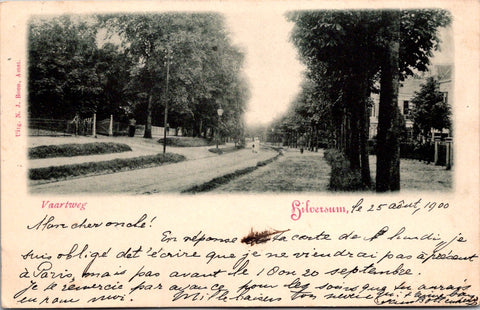 Uitg. N. J. Boon, Amst.
Vaartweg
Hilversum, le 25 août, 1900
Mon cher oncle!
En réponse ta carte de lundi, je
suis obligé det'écrire que je ne viendrai pas à présent
à Paris, mais pas avant le 18 on 20 septembre.
Je te remercie par avance pour les soins que tu auras
en pour moi. Mille baisers ton neveu qui